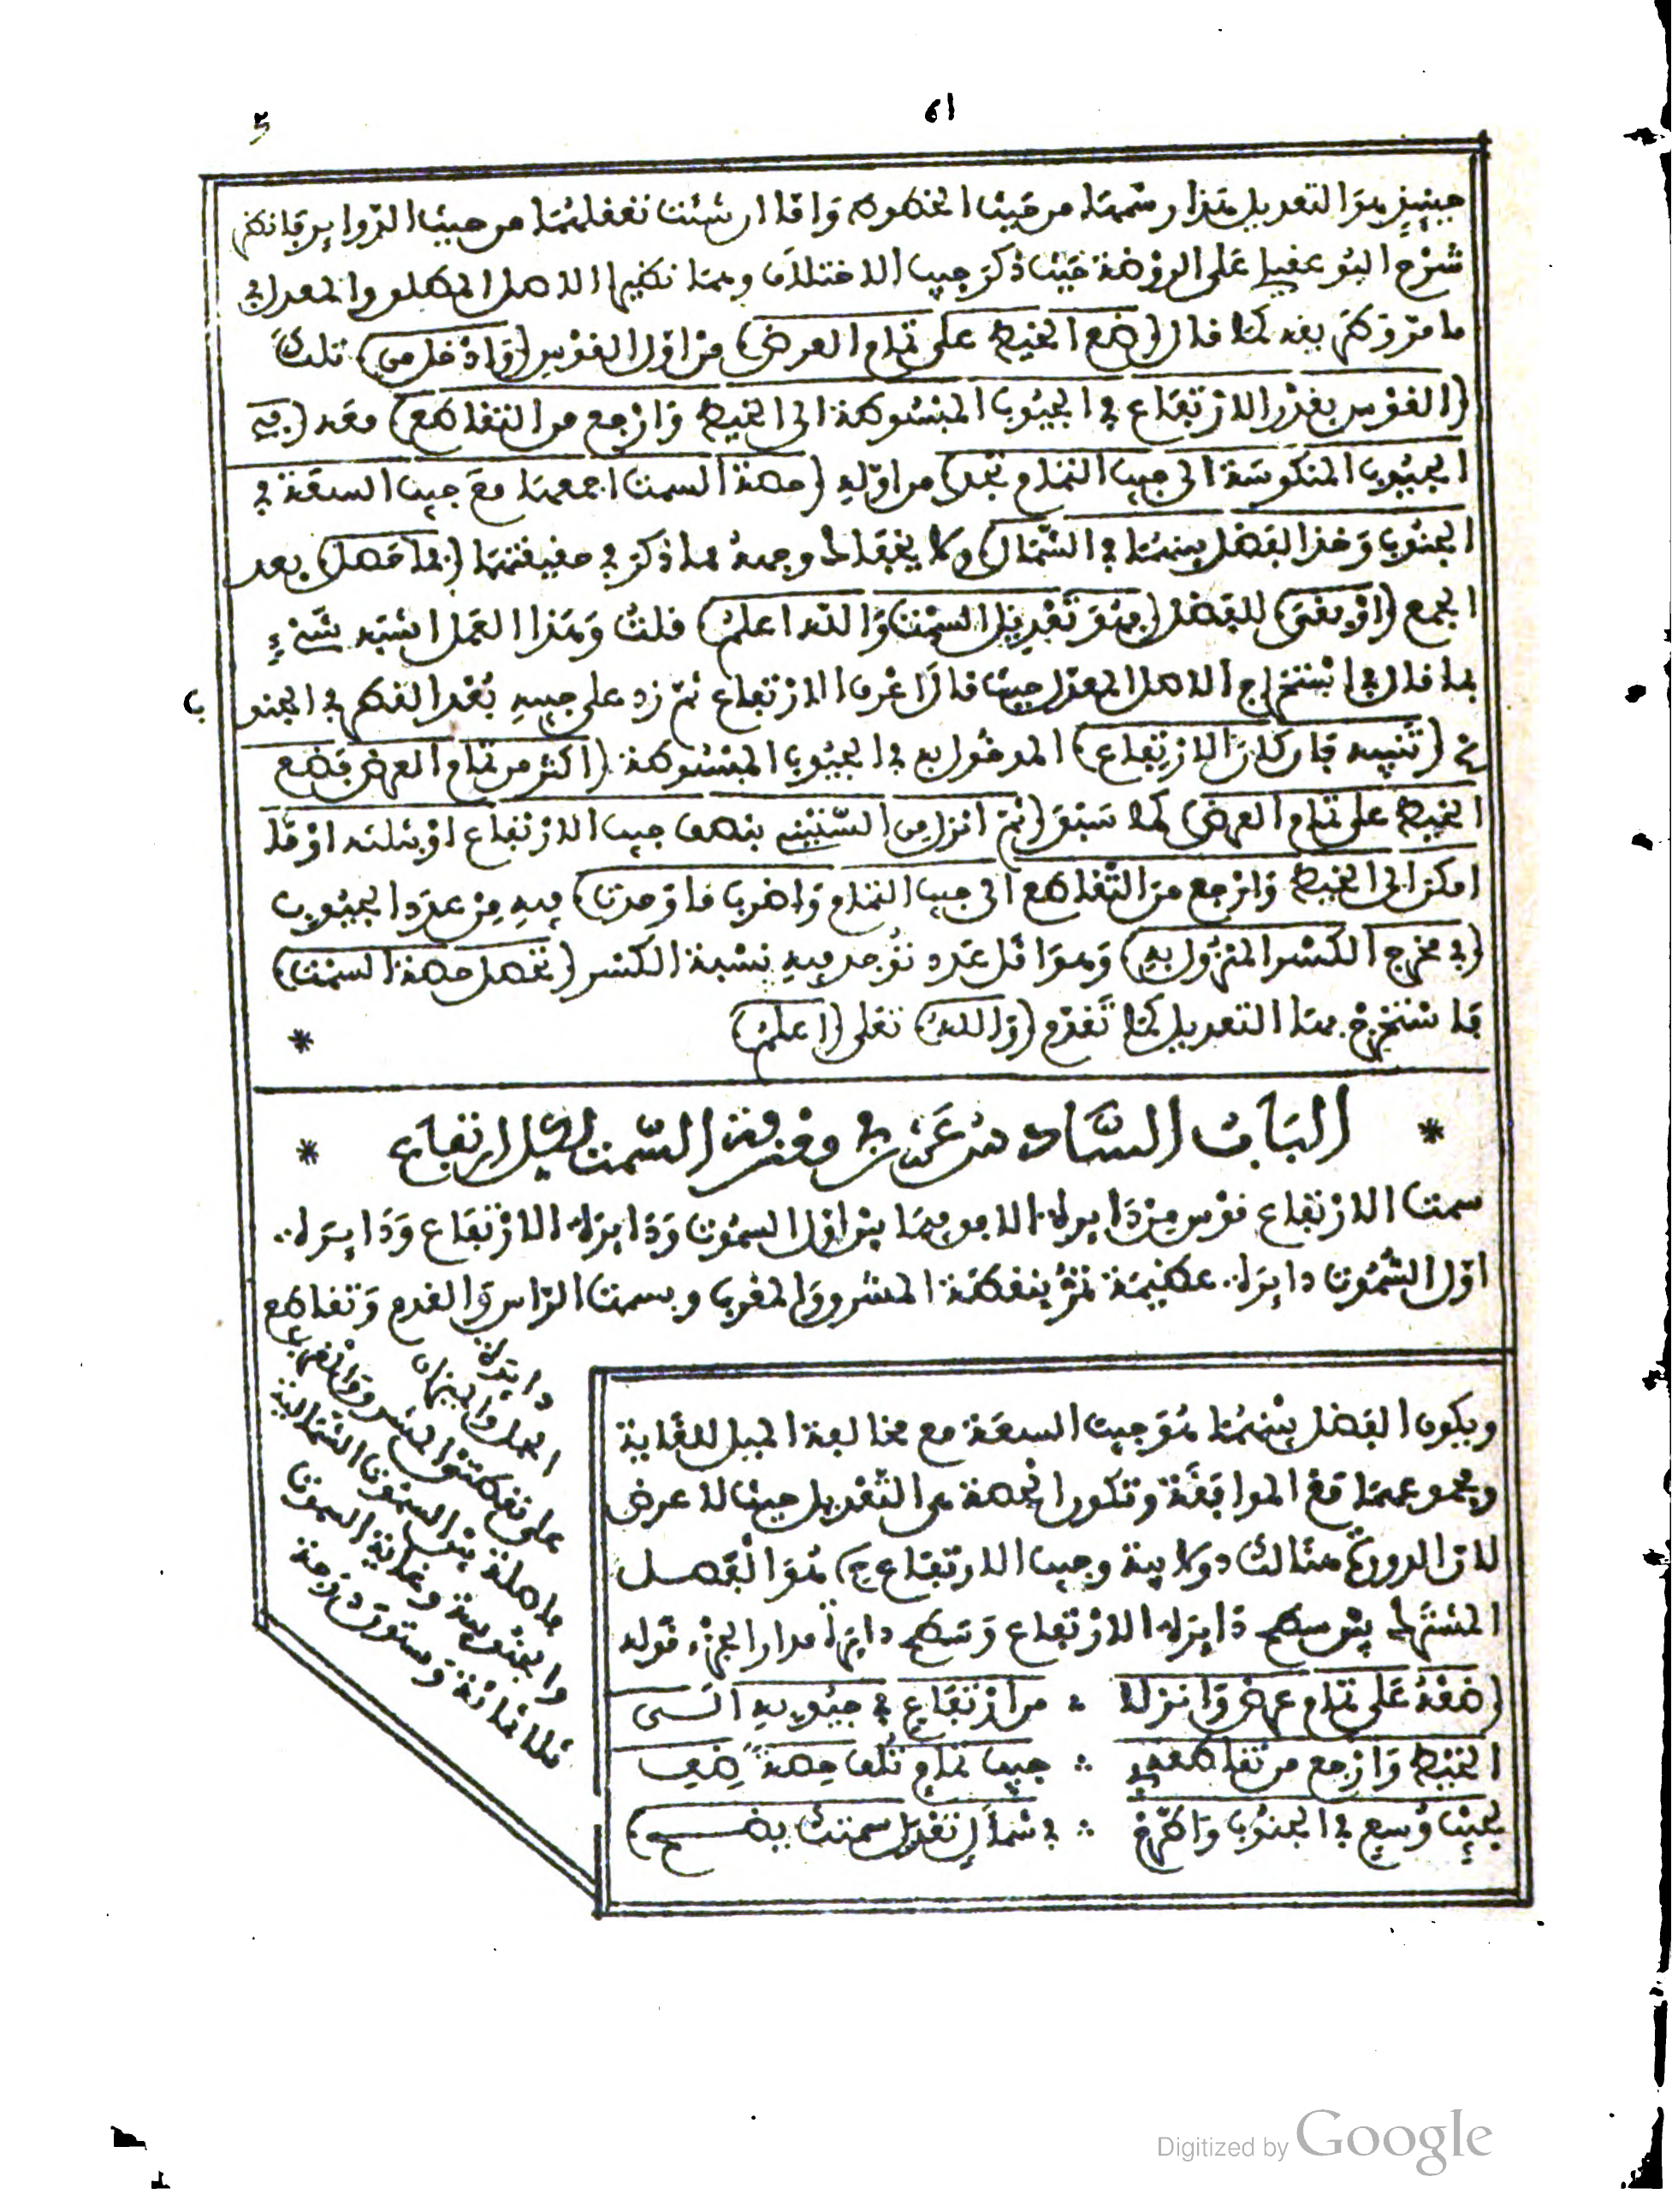 61
حينئذ هو التعديل هذا رسمها من حيث الخطوط واما ان شئت تعقلهما من حيث الدواير فانظر
شرح البوعقيلي على الروضة حيث ذكر جيب الاختلاف وهما نظيرا الاصل المطلق والمعدل في
ما مر وكم بعد كما قال (ضع الخيط على تمام العرض) من اول القوس (وادخل من) تلك
(القوس بقدر الارتفاع في الجيوب المبسوطة الى الخيط وارجع من التقاطع) معه (في
الجيوب المنكوسة الى جيب التمام تجد) من اوله (حصة السمت اجمعها مع جيب السعة في
الجنوب وخذ الفضل بينهما في الشمال) ولا يخفاك وجهه مما ذكر في حقيقتهما (فما حصل) بعد
الجمع (او بقى) للفضل (فهو تعديل السمت والله اعلم) قلت وهذا العمل اشبه شيء
بما قال في استخراج الاصل المعدل حيث قال اعرف الارتفاع ثم زد على جيبه بعد القطر في الجنو
ب
(تنبيه فان كان الارتفاع) المدخول به في الجيوب المبسوطة (اكثر من تمام العرض فضع
الخيط على تمام العرض) كما سبق (ثم انزل من الستيني بنصف جيب الارتفاع او بثلثه او ما
امكن الى الخيط وارجع من التقاطع الى جيب التمام واضرب ما وجدت) فيه من عدد الجيوب
(في مخرج الكسر المنزول به) وهو اقل عدد توجد فيه نسبة الكسر (تحصل حصة السمت)
فاستخرج بها التعديل كما تقدم (والله) تعلى (اعلم) *
* الباب السادس عشر في معرفة السمت لكل ارتفاع *
سمت الارتفاع قوس من دايرة الافق فيما بين اول السموت ودايرة الارتفاع ودايرة
اول السموت دايرة عظيمة تمر بنقطة المشرق والمغرب وبسمت الراس والقدم وتقاطع
دايرة
على نقطتي المشرق والمغرب
فاصلة بين السموت الشمالية
والجنوبية وغاية السموت
ثلاثمائة وستون درجة
ويكون الفضل بينهما هو جيب السعة مع مخالفة الميل للغاية
ومجموعهما مع الموافقة وتكون الحصة هي التعديل حيث لا عرض
لان الدورة هنالك دولابية وجيب الارتفاع ح هو الفصل
المشترك بين سطح دايرة الارتفاع وسطح دايرة مدار الجزء قوله
(ضعه على تمام عرض وانزلا ∴ من ارتفاع في جيوبه الى
الخيط وارجع من تقاطعه ∴ جيب تمام تلف حصة ضف
لجيب وسع في الجنوب واطرح ∴ في شمال تعديل سمتك يضح)
Digitized by Google